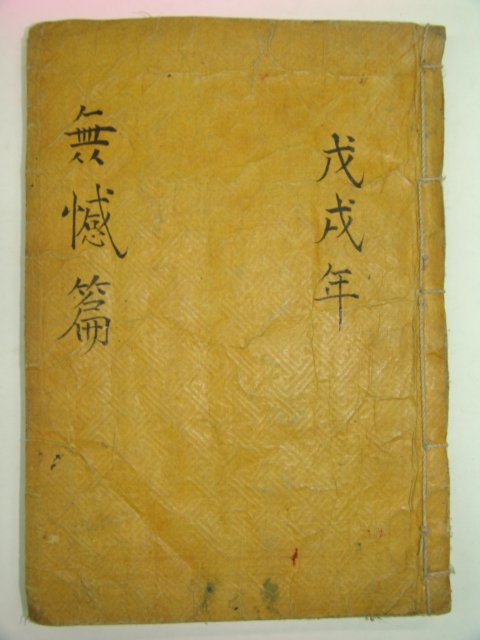 戊戌年
無憾篇